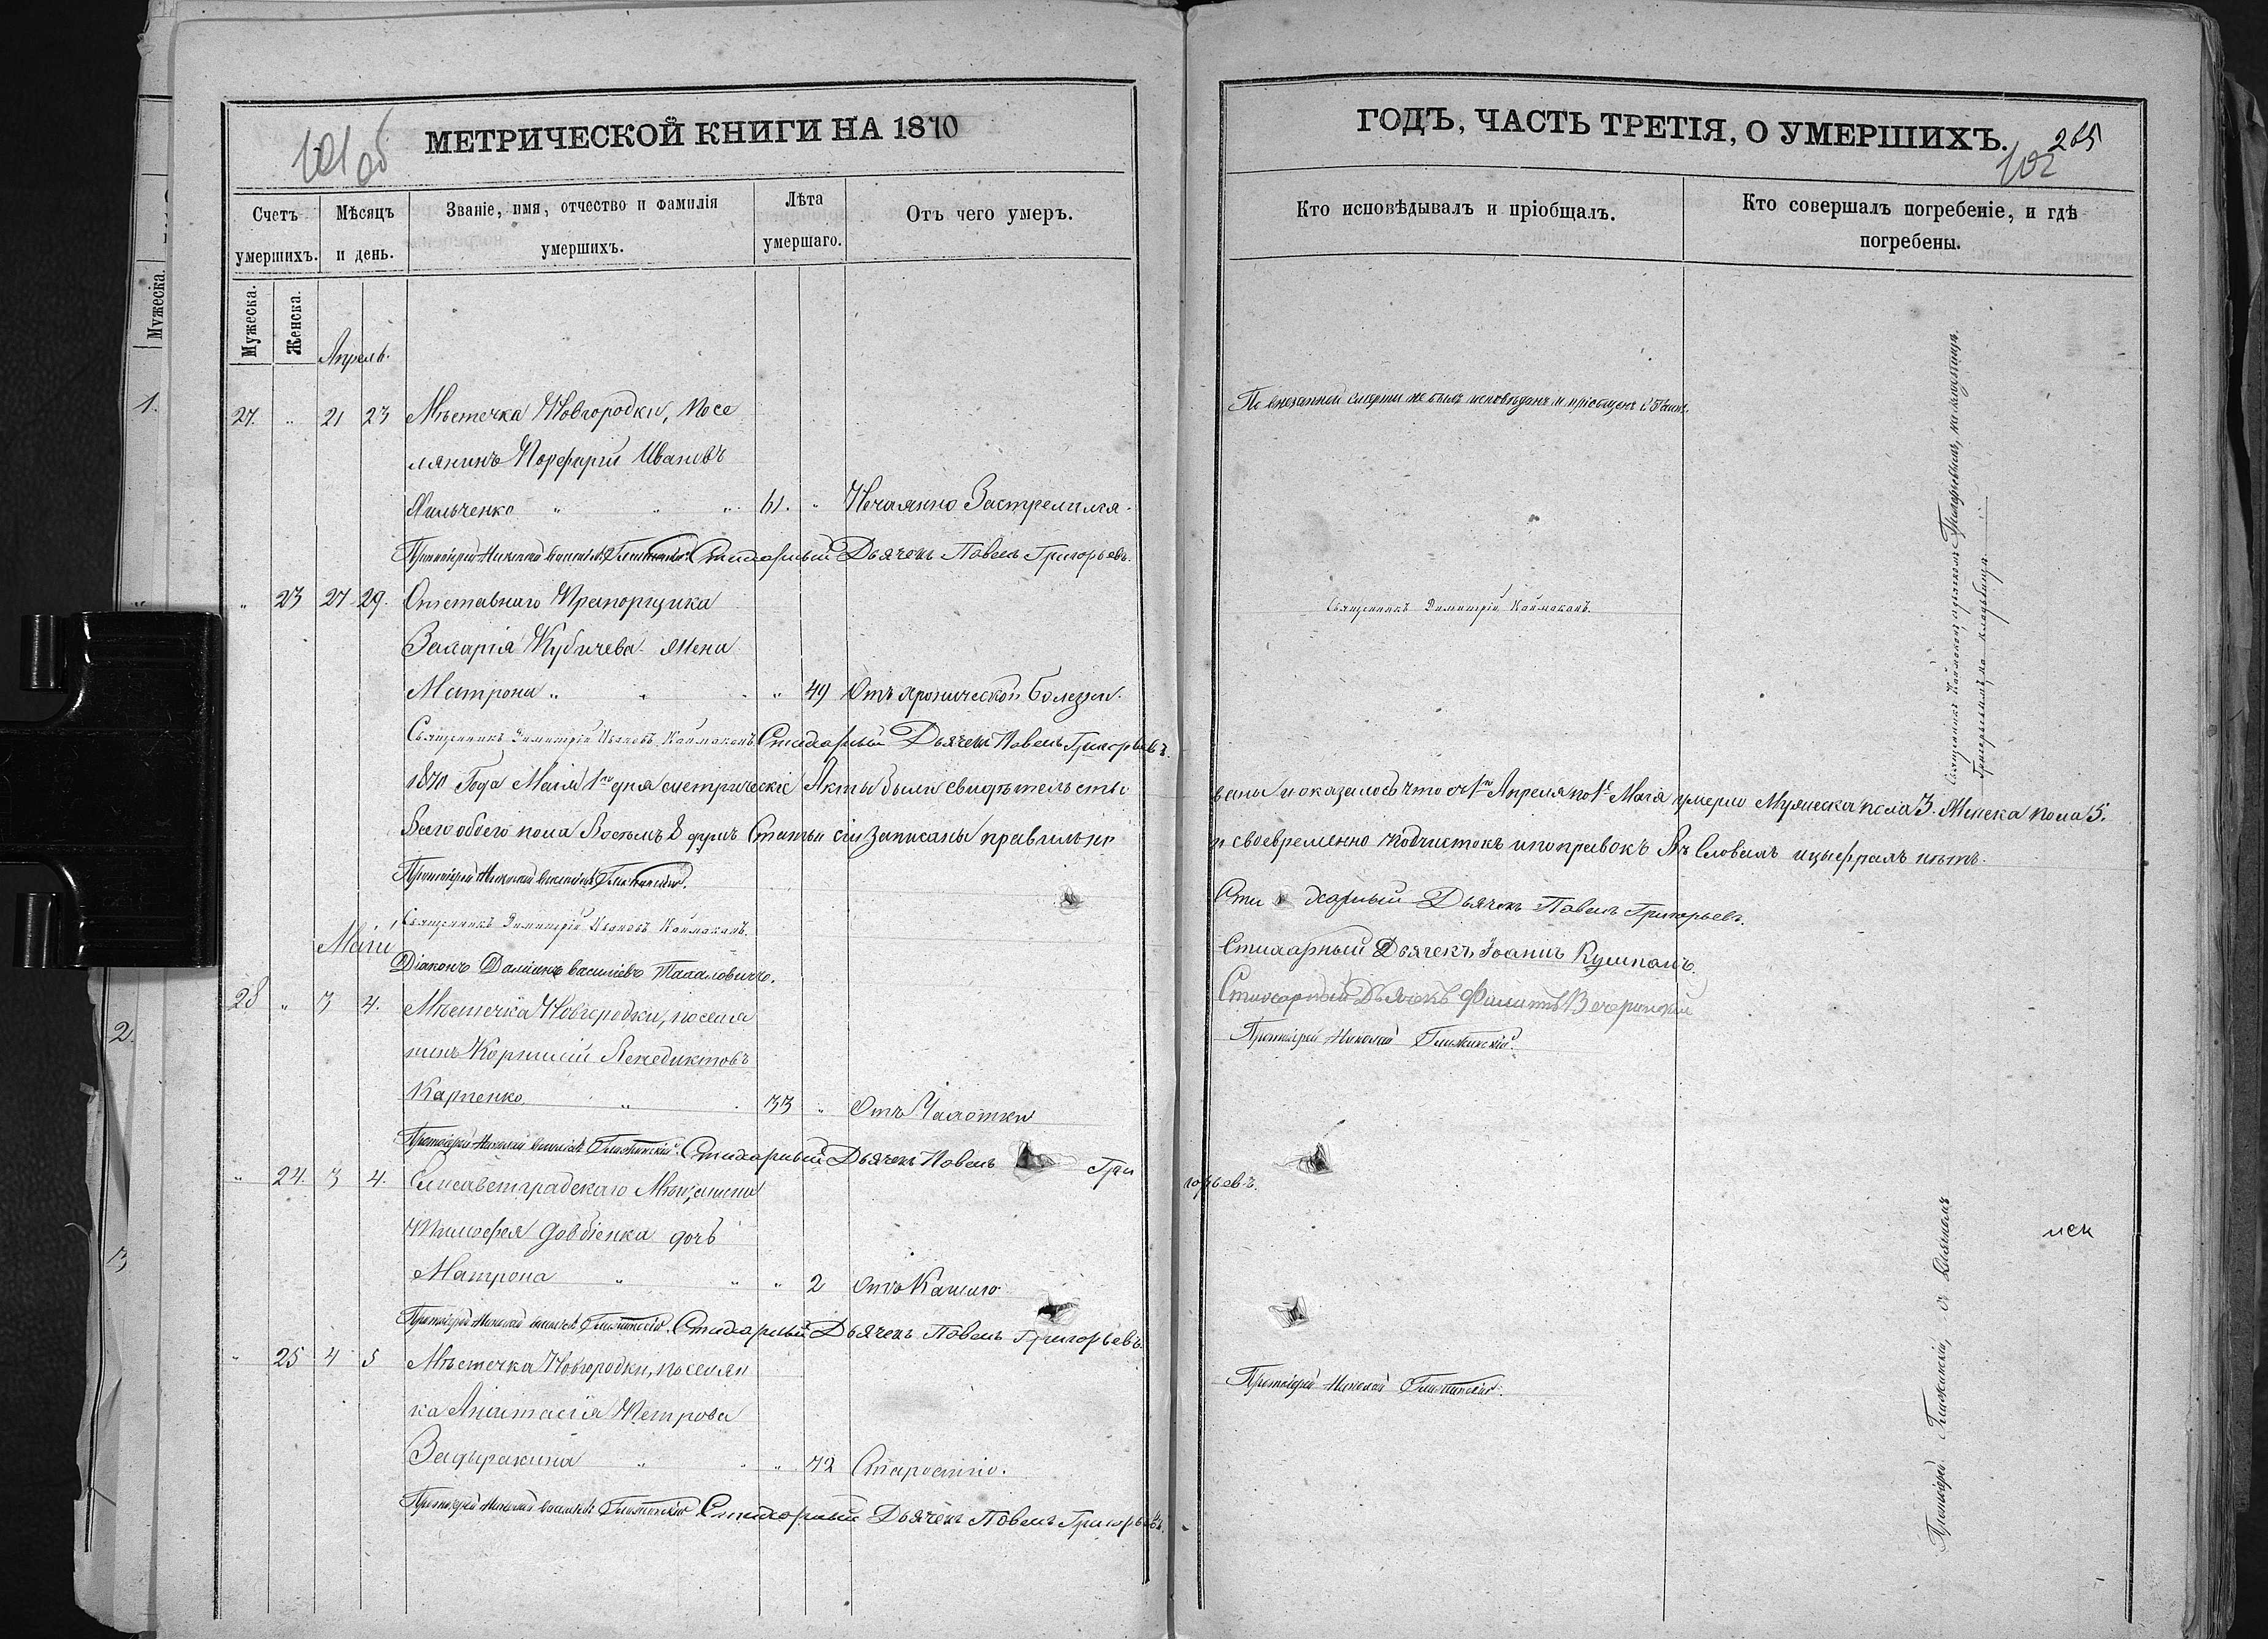 101 об
МЕТРИЧЕСКОЙ КНИГИ НА 1870
Счетъ умершихъ.
Мѣсяцъ и день.
Званіе, имя, отчество и фамилія умершихъ.
Лѣта умершаго.
Отъ чего умеръ.
Мужеска.
Женска.
Апрель.
27. " 21 23 Мѣстечка Новгородки, посе
лянинъ Порфирій Ивановъ
Ильченко " " " 61. " Нечаянно Застрелился.
Протоіерей Николай Васильевъ Стихарный Дьячекъ Павелъ Григорьевъ.
" 23 27 29. Отставнаго Прапорщика
Захарія Кубичева жена
Матрона " " " 49 Отъ хронической болезни.
Священникъ Димитрій Ивановъ Каймаканъ Стихарный Дьячекъ Павелъ Григорьевъ.
1870 Года Маія 1го дня метрическіе Акты были свидѣтельство
Всего обоего пола Восемь 8 душъ Статьи сіи записаны правильно
Протоіерей Николай Васильевъ
Священникъ Димитрій Ивановъ Каймаканъ.
Маій
Діаконъ Даміанъ Васильевъ
28 " 3 4. Мѣстечка Новгородки, поселя
нинъ Корнилій Венедиктовъ
Карпенко " 33 " Отъ Чахотки
Протоіерей Николай Васильевъ Стихарный Дьячекъ Павелъ Гри
" 24. 3 4. Елисаветградскаго Мѣщанина
Тимофея Довбіенка дочь
Матрона " " " 2 Отъ Кашлю
Протоіерей Николай Васильевъ Стихарный Дьячекъ Павелъ Григорьевъ.
" 25 4 5 Мѣстечка Новгородки, поселян
ка Анастасія Петрова
Задыракина " " " 72 Старостію.
Протоіерей Николай Васильевъ Стихарный Дьячекъ Павелъ Григорьевъ.
ГОДЪ, ЧАСТЬ ТРЕТІЯ, О УМЕРШИХЪ.
265
102
Кто исповѣдывалъ и пріобщалъ.
Кто совершалъ погребеніе, и гдѣ погребены.
По внезапной смерти не былъ исповѣданъ и пріобщенъ
Священникъ Димитрій Каймаканъ.
Священникъ Каймаканъ, съ дьячкомъ Григорьевымъ, на кладбищѣ.
ваны и оказалось что съ 1го Апреля по 1е Маія умерло Мужеска пола 3. Женска пола 5.
и своевременно подчистокъ и поправокъ въ Словахъ и цыфрахъ нѣтъ.
Стихарный Дьячекъ Павелъ Григорьевъ.
Стихарный Дьячекъ Іоаннъ
Стихарный Дьячекъ
Протоіерей Николай
горьевъ.
Протоіерей Николай